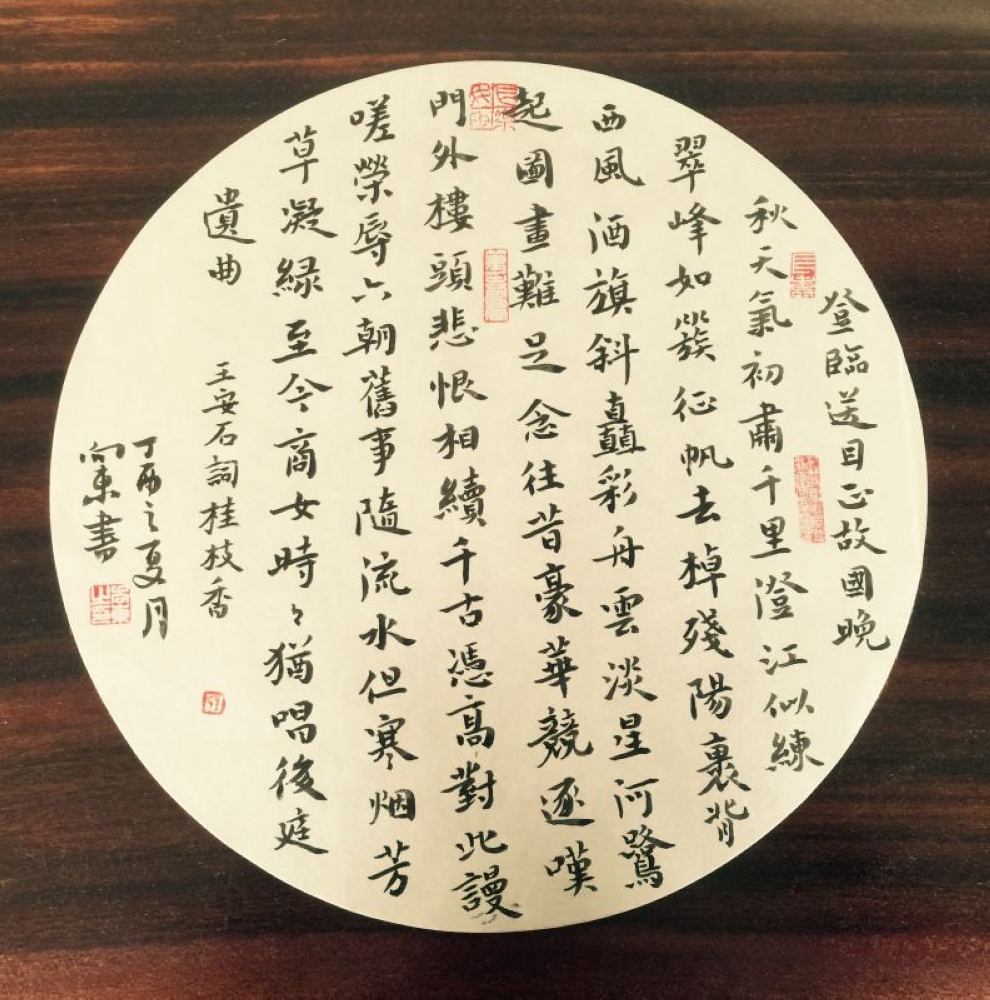 登臨送目正故國晚
秋天氣初肅千里澄江似練
翠峰如簇征帆去棹殘陽裏背
西風酒旗斜矗彩舟雲淡星河鷺
起圖畫難足念往昔豪華競逐嘆
門外樓頭悲恨相續千古憑高對此謾
嗟榮辱六朝舊事隨流水但寒烟芳
草凝緑至今商女時々猶唱後庭
遺曲
王安石詞桂枝香
丁酉之夏月
向東書